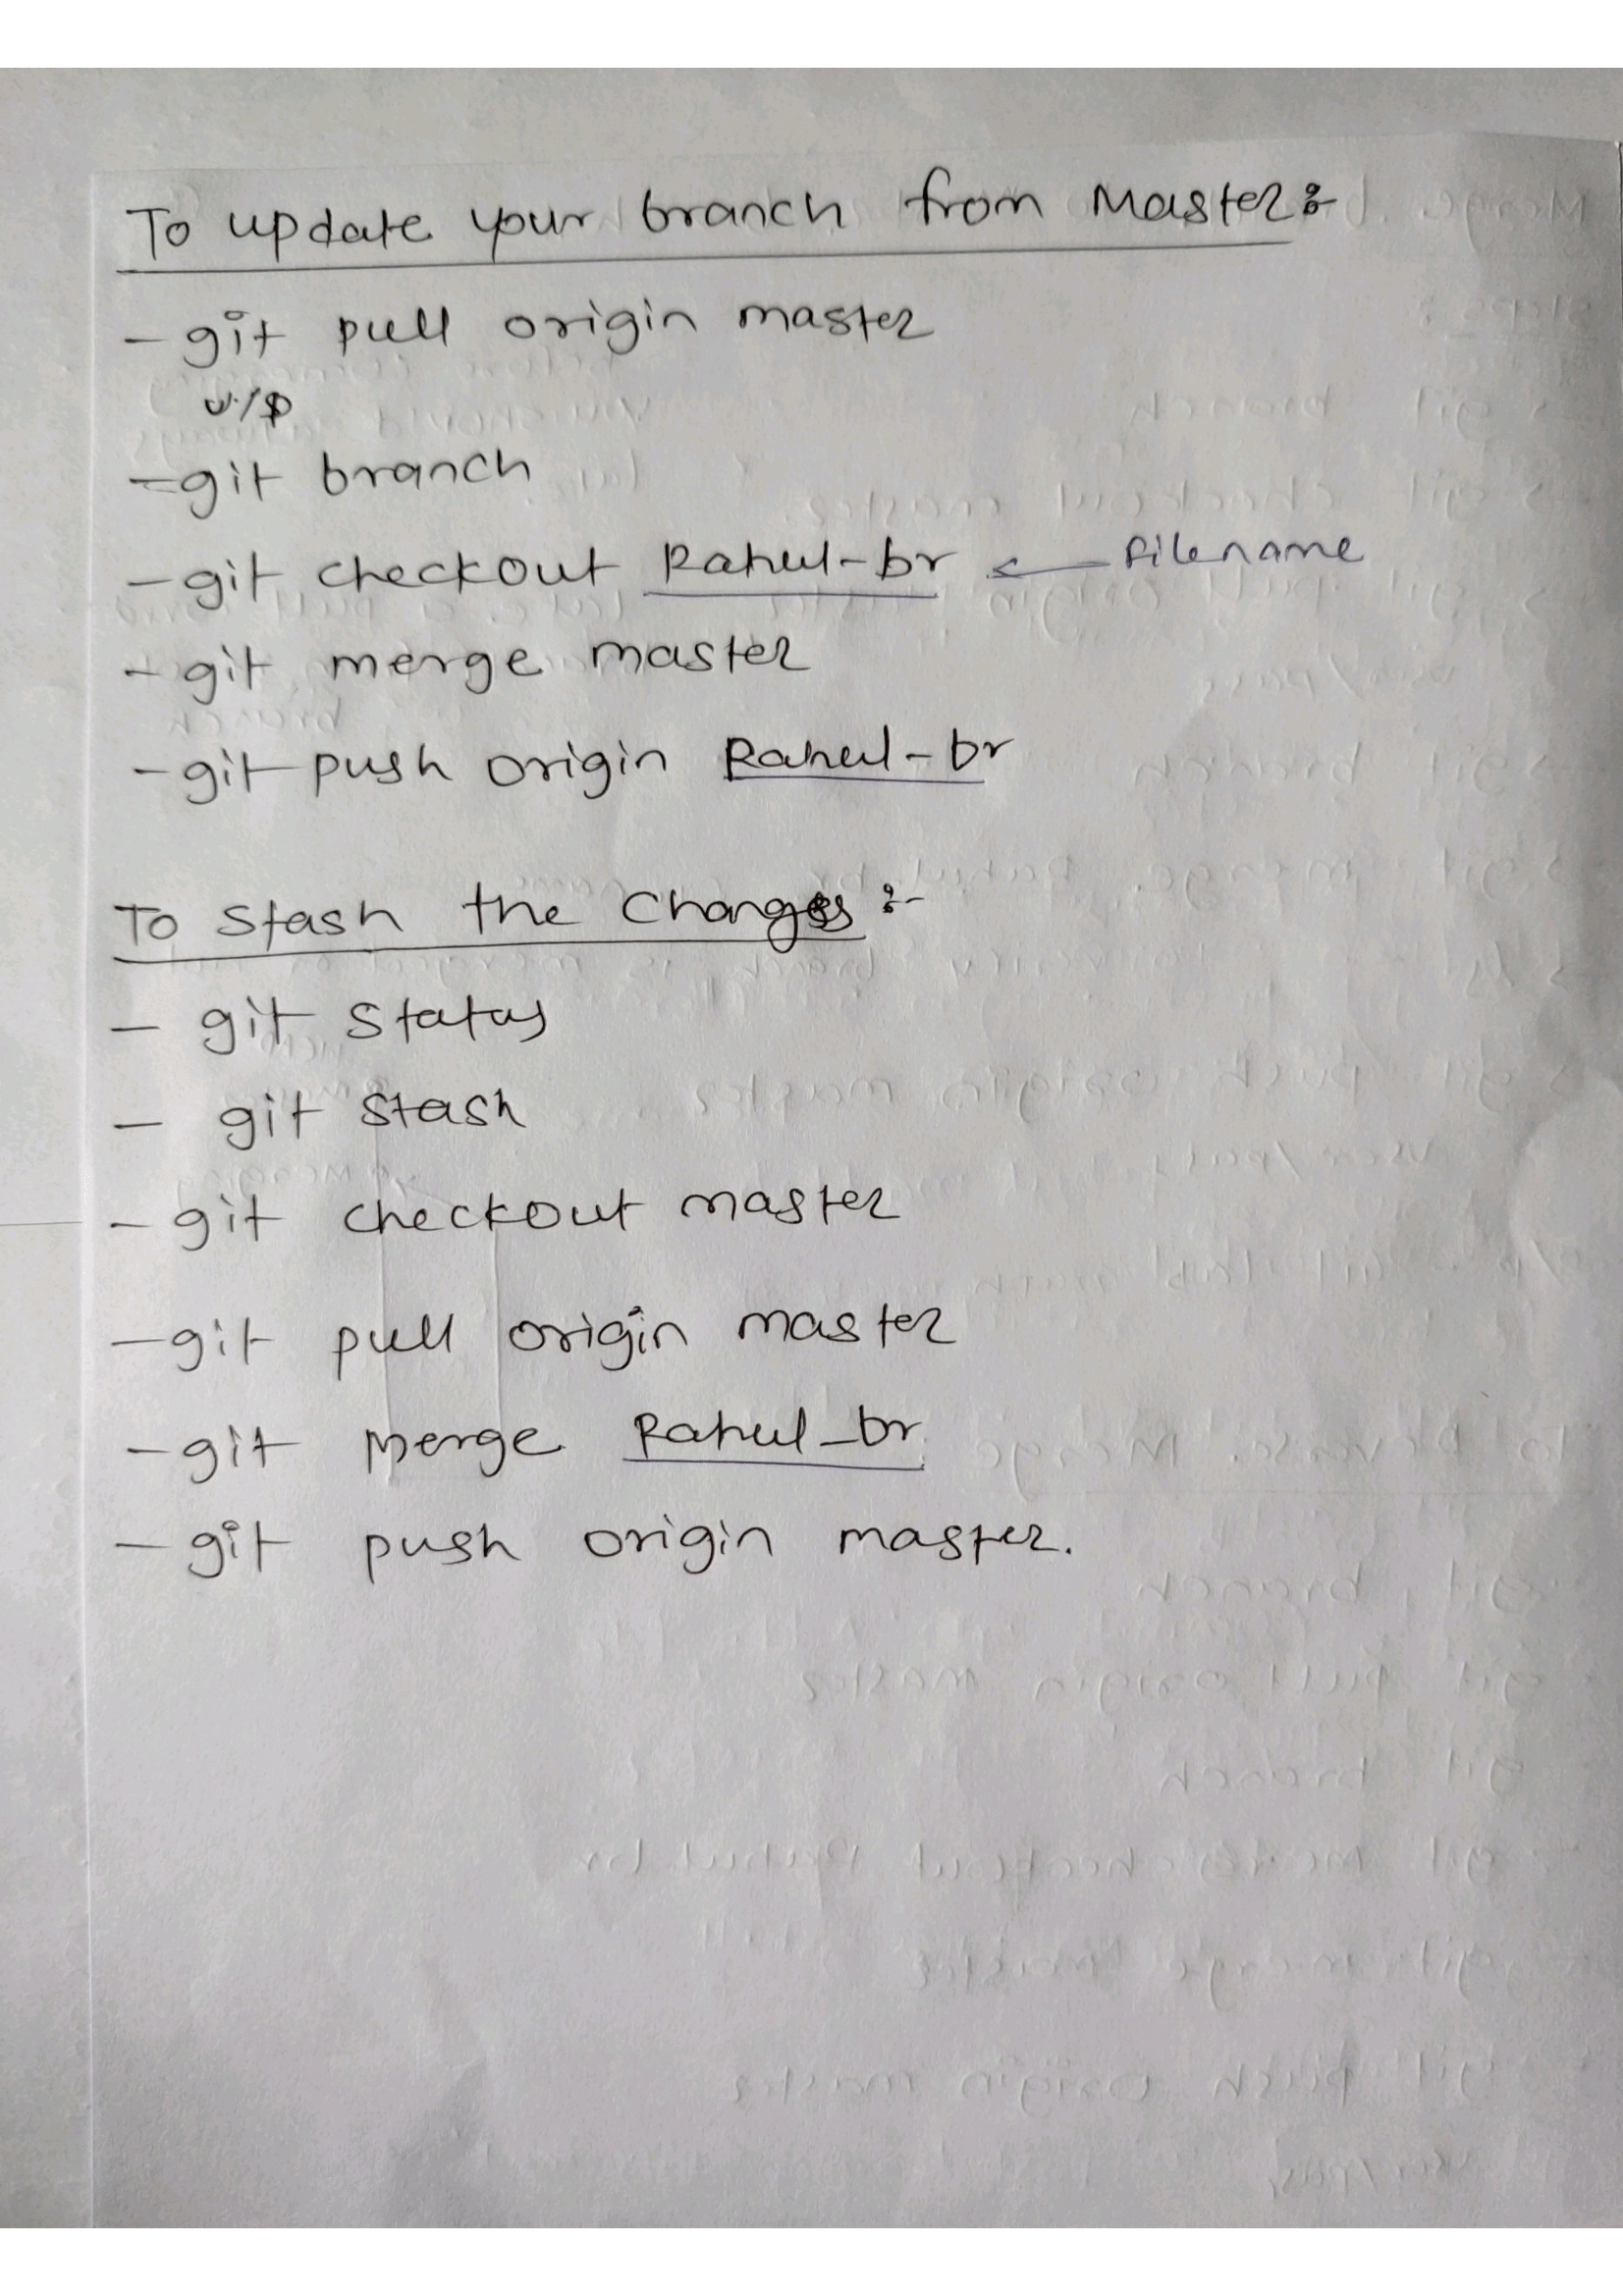 To update your branch from Master :-
- git pull origin master
U/P
- git branch
- git checkout Rahul-br ← Filename
- git merge master
- git push origin Rahul-br
To Stash the Changes :-
- git status
- git stash
- git checkout master
- git pull origin master
- git merge Rahul_br
- git push origin master.